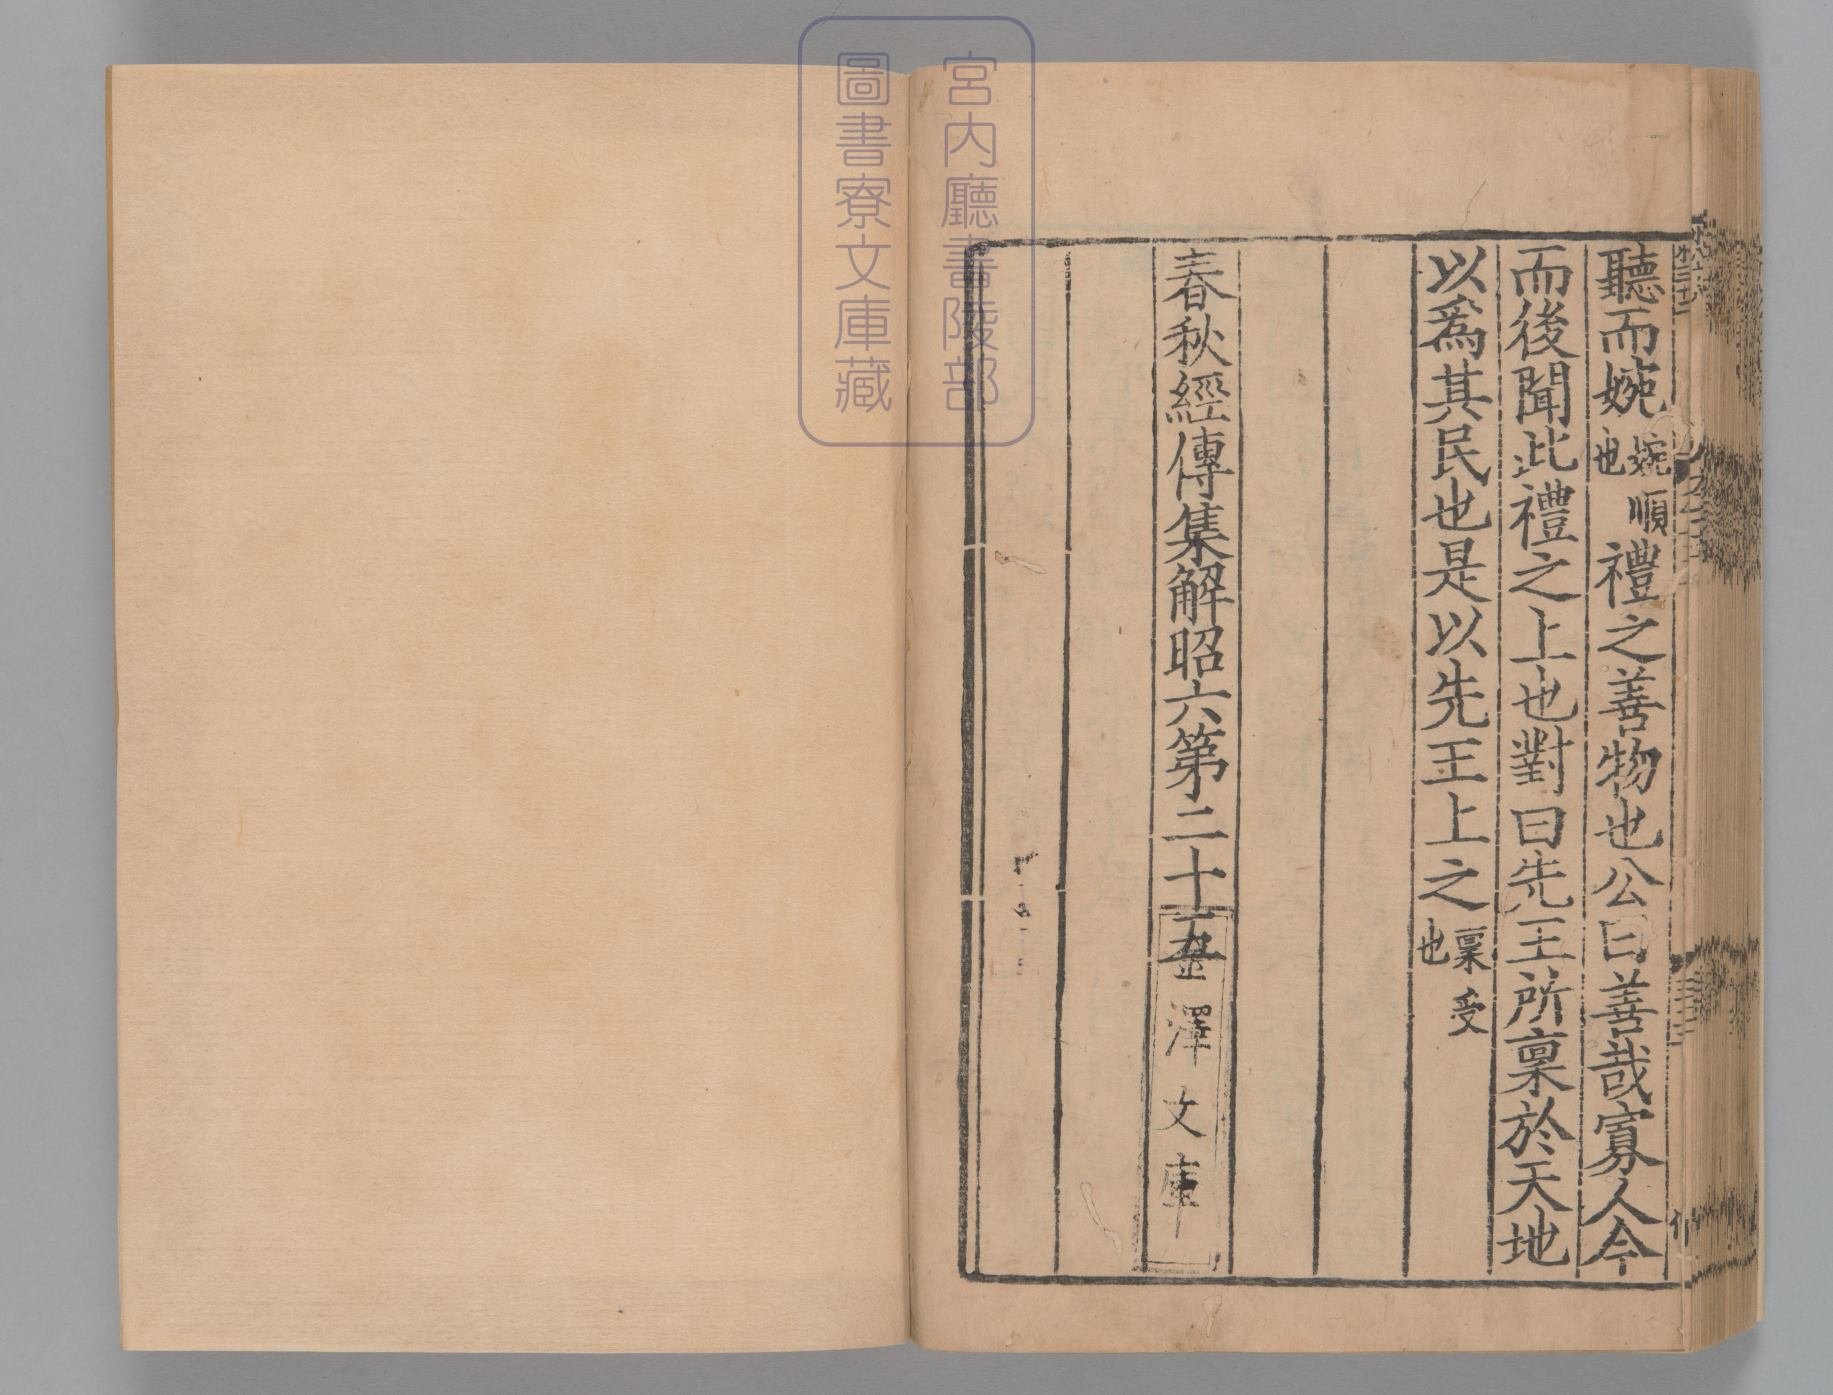 聽而婉婉順也禮之善物也公曰善哉寡人今
而後聞此禮之上也對曰先王所稟於天地
以爲其民也是以先王上之稟受也
春秋經傳集解昭六第二十五
金澤文庫
宮内廳書陵部
圖書寮文庫藏